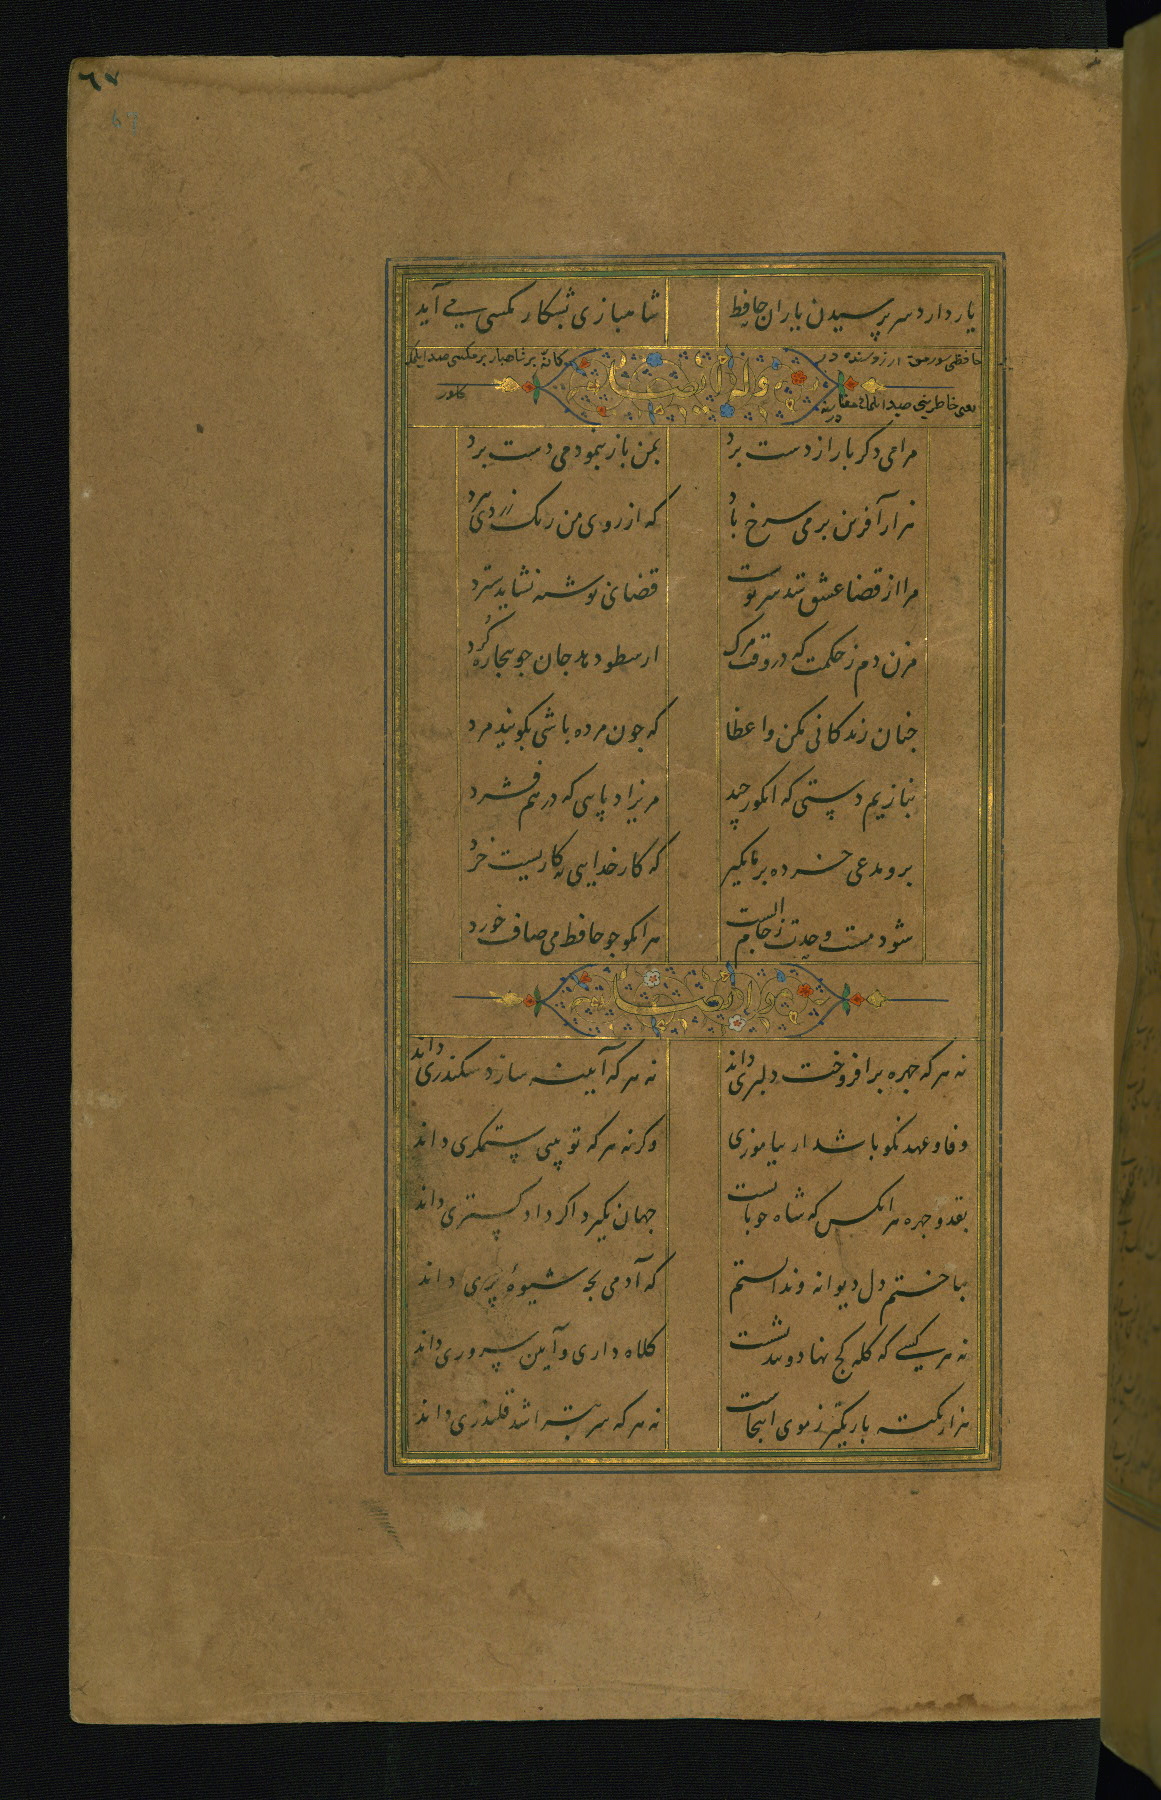 ٦٧
یار دارد سر پرسیدن یاران حافظ شاهبازی بشکار مکسی می آید
وله ایضا
مرا می دکر بار از دست برد بمن باز بنمود می دست برد
هزار آفرین بر می سرخ باد که از روی من رنک زردی ببرد
مرا از قضا عشق شد سرنوشت قضای نوشته نشاید سترد
مزن دم ز حکمت که در وقت مرک ارسطو دهد جان جو بیجاره کرد
جنان زندکانی مکن واعظا که جون مرده باشی بکویند مرد
بنازیم دستی که انکور چید مریزاد پایی که در هم فشرد
برو مدعی خرده بر ما مکیر که کار خدایی نه کاریست خرد
شود مست وحدت ز جام الست هر انکو جو حافظ می صاف خورد
وله ایضا
نه هر که جهره برافروخت دلبری داند نه هر که آیینه سازد سکندری داند
وفا و عهد نکو باشد ار بیاموزی وکرنه هر که تو بینی ستمکری داند
بقد و جهره هر انکس که شاه خوبانست جهان بکیرد اکر دادکستری داند
بباختم دل دیوانه و ندانستم که آدمی بجه شیوهٔ پری داند
نه هر کسی که کله کج نهاد و تند نشست کلاه داری و آیین سروری داند
هزار نکته باریکتر ز موی اینجاست نه هر که سر بتراشد قلندری داند